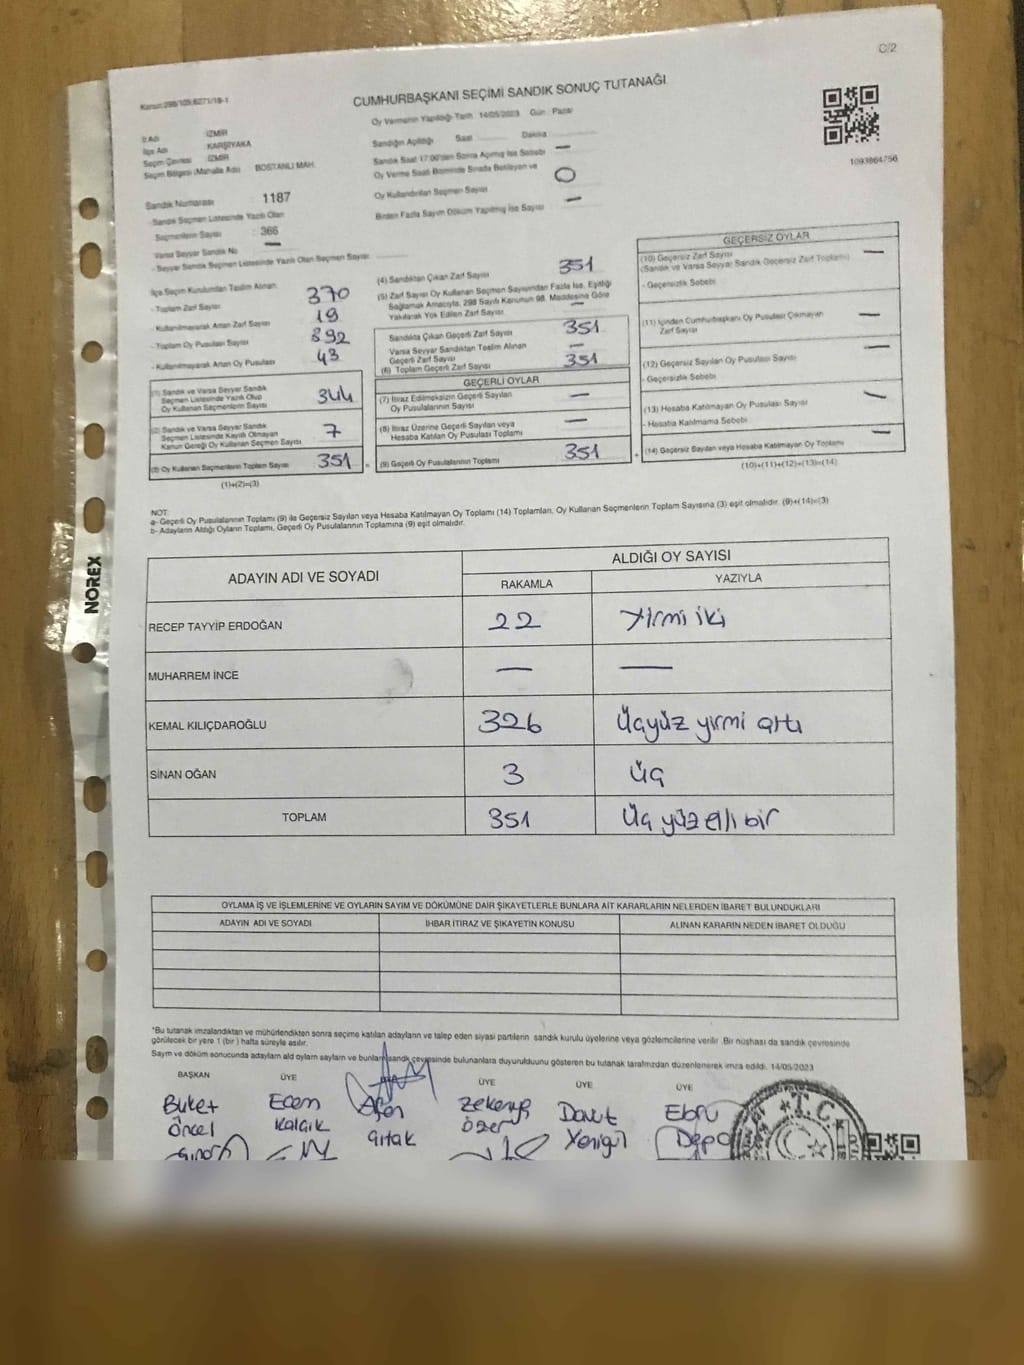 C/2
Kanun:298/105;6271/19-1
CUMHURBAŞKANI SEÇİMİ SANDIK SONUÇ TUTANAĞI
Oy Vermenin Yapıldığı Tarih 14/05/2023 Gün : Pazar
İl Adı : İZMİR
İlçe Adı : KARŞIYAKA
Seçim Çevresi : İZMİR
Seçim Bölgesi (Mahalle Adı) : BOSTANLI MAH.
Sandık Numarası : 1187
- Sandık Seçmen Listesinde Yazılı Olan
Seçmenlerin Sayısı : 366
Varsa Seyyar Sandık No —
- Seyyar Sandık Seçmen Listesinde Yazılı Olan Seçmen Sayısı:
Sandığın Açıldığı Saat Dakika
Sandık Saat 17:00'den Sonra Açılmış İse Sebebi —
Oy Verme Saati Bitiminde Sırada Bekleyen ve
Oy Kullandırılan Seçmen Sayısı 0
Birden Fazla Sayım Döküm Yapılmış İse Sayısı —
1093864756
İlçe Seçim Kurulundan Teslim Alınan
- Toplam Zarf Sayısı 370
- Kullanılmayarak Artan Zarf Sayısı 19
- Toplam Oy Pusulası Sayısı 892
- Kullanılmayarak Artan Oy Pusulası 43
(1) Sandık ve Varsa Seyyar Sandık
Seçmen Listesinde Yazılı Olup
Oy Kullanan Seçmenlerin Sayısı 344
(2) Sandık ve Varsa Seyyar Sandık
Seçmen Listesinde Kayıtlı Olmayan
Kanun Gereği Oy Kullanan Seçmen Sayısı 7
(3) Oy Kullanan Seçmenlerin Toplam Sayısı 351
(1)+(2)=(3)
(4) Sandıktan Çıkan Zarf Sayısı 351
(5) Zarf Sayısı Oy Kullanan Seçmen Sayısından Fazla İse, Eşitliği
Sağlamak Amacıyla, 298 Sayılı Kanunun 98. Maddesine Göre
Yakılarak Yok Edilen Zarf Sayısı —
Sandıkta Çıkan Geçerli Zarf Sayısı 351
Varsa Seyyar Sandıktan Teslim Alınan
Geçerli Zarf Sayısı —
(6) Toplam Geçerli Zarf Sayısı 351
GEÇERLİ OYLAR
(7) İtiraz Edilmeksizin Geçerli Sayılan
Oy Pusulalarının Sayısı —
(8) İtiraz Üzerine Geçerli Sayılan veya
Hesaba Katılan Oy Pusulası Toplamı —
(9) Geçerli Oy Pusulalarının Toplamı 351
GEÇERSİZ OYLAR
(10) Geçersiz Zarf Sayısı —
(Sandık ve Varsa Seyyar Sandık Geçersiz Zarf Toplamı)
- Geçersizlik Sebebi
(11) İçinden Cumhurbaşkanı Oy Pusulası Çıkmayan
Zarf Sayısı —
(12) Geçersiz Sayılan Oy Pusulası Sayısı —
- Geçersizlik Sebebi
(13) Hesaba Katılmayan Oy Pusulası Sayısı —
- Hesaba Katılmama Sebebi
(14) Geçersiz Sayılan veya Hesaba Katılmayan Oy Toplamı —
(10)+(11)+(12)+(13)=(14)
NOT:
a- Geçerli Oy Pusulalarının Toplamı (9) ile Geçersiz Sayılan veya Hesaba Katılmayan Oy Toplamı (14) Toplamları, Oy Kullanan Seçmenlerin Toplam Sayısına (3) eşit olmalıdır. (9)+(14)=(3)
b- Adayların Aldığı Oyların Toplamı, Geçerli Oy Pusulalarının Toplamına (9) eşit olmalıdır.
NOREX
ADAYIN ADI VE SOYADI ALDIĞI OY SAYISI
RAKAMLA YAZIYLA
RECEP TAYYİP ERDOĞAN 22 Yirmi iki
MUHARREM İNCE — —
KEMAL KILIÇDAROĞLU 326 Üçyüz yirmi altı
SİNAN OĞAN 3 Üç
TOPLAM 351 Üç yüz elli bir
OYLAMA İŞ VE İŞLEMLERİNE VE OYLARIN SAYIM VE DÖKÜMÜNE DAİR ŞİKAYETLERLE BUNLARA AİT KARARLARIN NELERDEN İBARET BULUNDUKLARI
ADAYIN ADI VE SOYADI İHBAR İTİRAZ VE ŞİKAYETİN KONUSU ALINAN KARARIN NEDEN İBARET OLDUĞU
*Bu tutanak imzalandıktan ve mühürlendikten sonra seçime katılan adayların ve talep eden siyasi partilerin sandık kurulu üyelerine veya gözlemcilerine verilir. Bir nüshası da sandık çevresinde
görülecek bir yere 1 (bir) hafta süreyle asılır.
Sayım ve döküm sonucunda adayların aldı oyların sayıları ve bunların sandık çevresinde bulunanlara duyurulduunu gösteren bu tutanak tarafımızdan düzenlenerek imza edildi. 14/05/2023
BAŞKAN ÜYE ÜYE ÜYE ÜYE
Buket Ecem Zekeriya Davut Ebru
Öncel Kalçık Özer Yenigül
T.C.